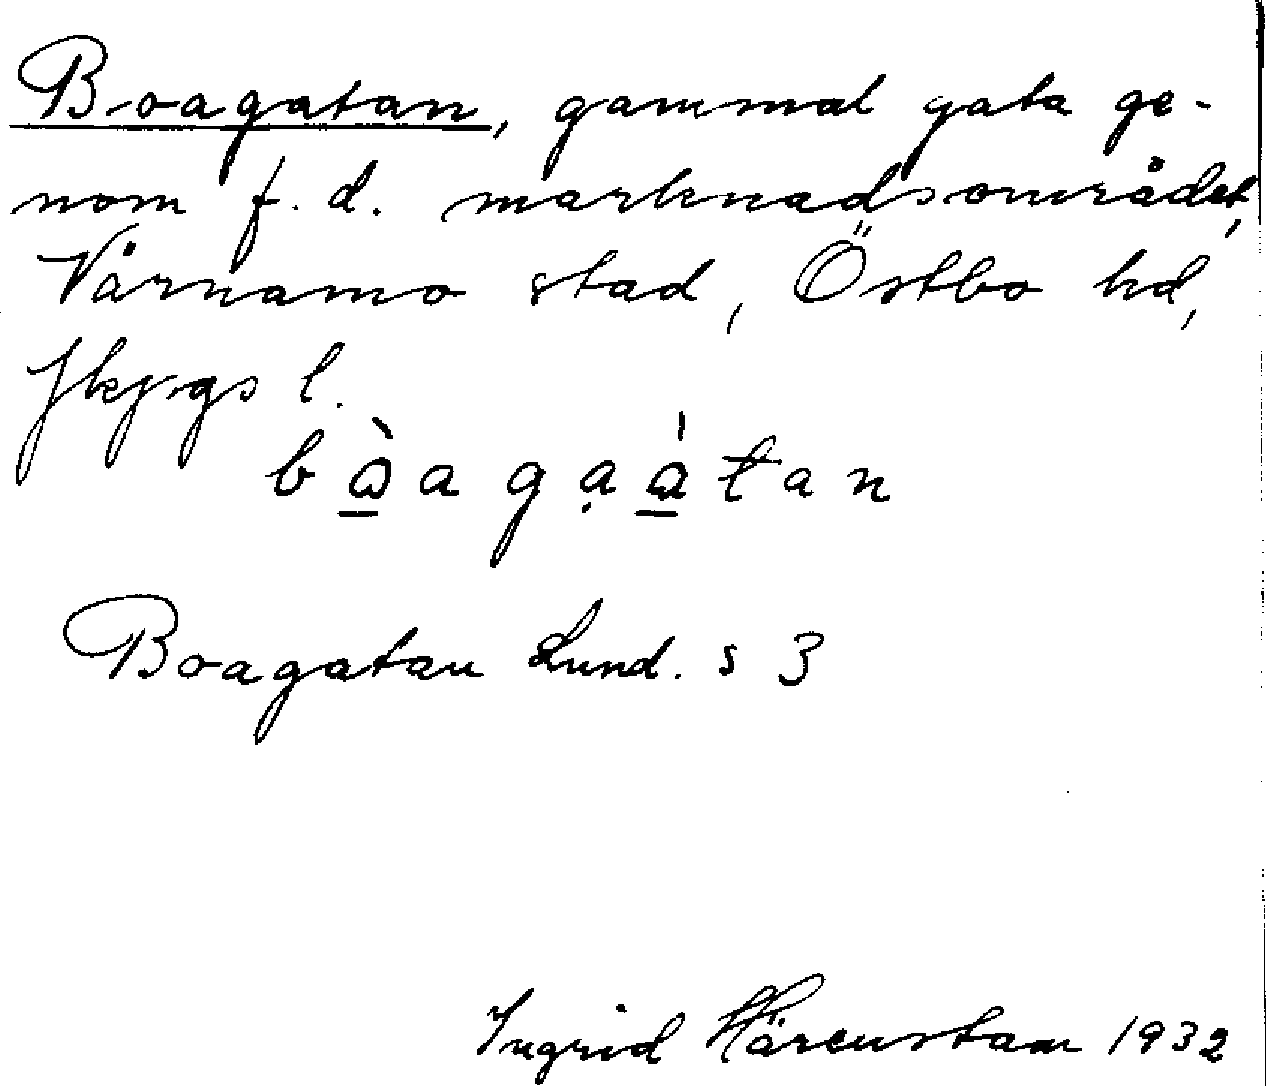 Boagatan, gammal gata ge-
nom f. d. marknadsområdet,
Värnamo stad, Östbo hd,
Jkpgs l.
bò̲agạá̲tan
Boagatan Lund. s 3
Ingrid Härenstam 1932